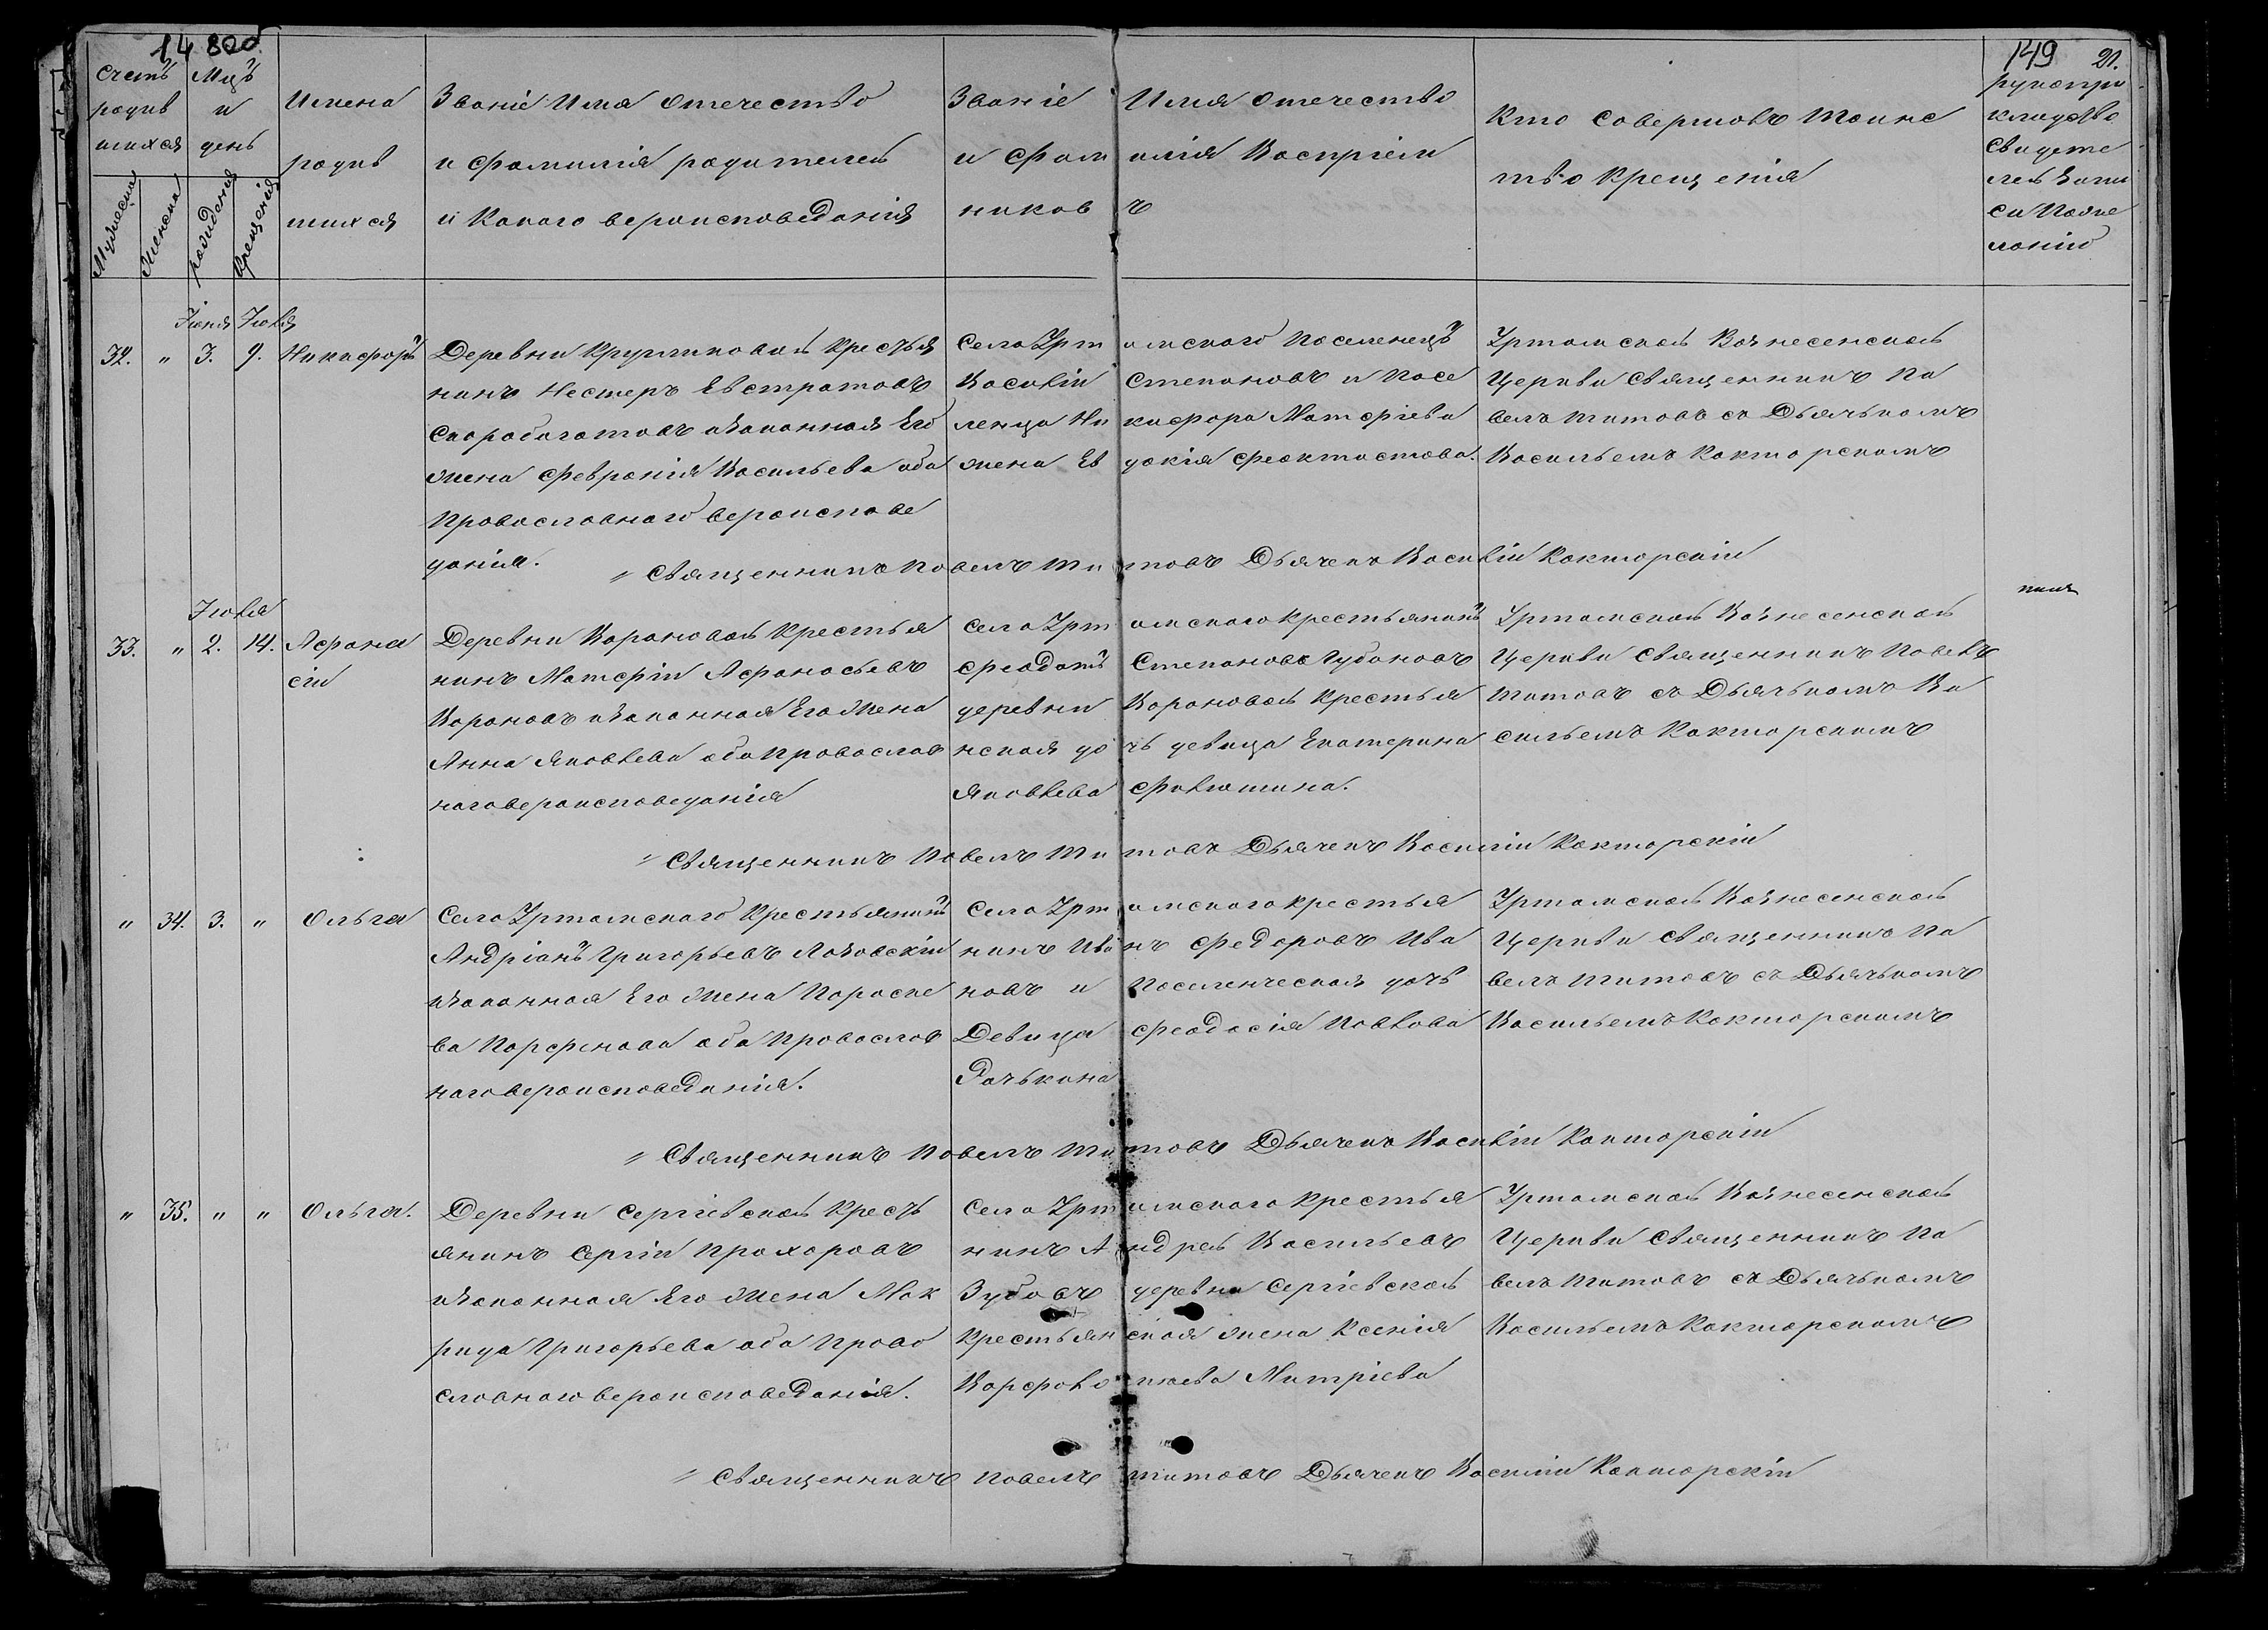 14 8об 149 21.
Счетъ родив шихся
Мужеска
Женска
Мцъ и день
рождения
крещенія
Имена родив шихся
Званіе Имя Отечество
и Фамилія родителей
и Какого вероисповеданія
Званіе Имя Отечество
и Фам илія Воспріем
ников ъ
Кто Совершовъ Таинс
тво Крещенія
рукопри
кладство
Свидете
лей Запи
си По же
ланію
Іюня Іюля
32. " 3. 9. Никифоръ
Деревни Кругликовой Крестья
нинъ Нестеръ Евстратовъ
Скоробогатовъ иЗаконная Его
жена Февронія Васильева оба
Православного вероиспове
данія.
Село Уртамского Поселенецъ
Василій Степановъ и Посе
ленца Никифора Матфіева
жена Евдокія Феоктистова.
Уртамской Вознесенской
Церкви Священникъ Па
велъ Титовъ съ Дьячькомъ
Васильемъ Кокторскимъ
" Священникъ Павелъ Титовъ Дьячекъ Василій Кокторскій
Іюля
33. " 2. 14. Афана
сій
Деревни Вороновой Крестья
нинъ Матфій Афонасьевъ
Вороновъ иЗаконная Его Жена
Анна Яковлева оба Православ
наго вероисповеданія
Село Уртамского Крестьянинъ
Феодотъ Степановъ Губановъ
деревни Вороновой Крестья
нская дочь девица Екатерина
Яковлева Филютина.
Уртамской Вознесенской
Церкви Священникъ Павелъ
Титовъ съ Дьячькомъ Ва
сильемъ Кокторскимъ
" Священникъ Павелъ Титовъ Дьячекъ Василій Кокторскій
" 34. 3. " Ольга
Село Уртамского Крестьянинъ
Андріанъ Григорьевъ Лозовскій
иЗаконная Его Жена Пароске
ва Парфенова оба Православ
наго вероисповеданія.
Село Уртамского Крестья
нинъ Иванъ Федоровъ Ива
новъ и Поселенческая дочь
Девица Феодосія Павлова
Рачькина
Уртамской Вознесенской
Церкви Священникъ Па
велъ Титовъ съ Дьячькомъ
Васильемъ Кокторскимъ
" Священникъ Павелъ Титовъ Дьячекъ Василій Кокторскій
" 35. " " Ольга.
Деревни Сергіевской Кресть
янинъ Сергій Прохоровъ
иЗаконная Его Жена Мак
рида Григорьева оба Право
славнаго вероисповеданія.
Село Уртамского Крестья
нинъ Андрей Васильевъ
Зубовъ деревни Сергіевской
Крестьянская жена Ксенія
Митріева
Уртамской Вознесенской
Церкви Священникъ Па
велъ Титовъ съ Дьячькомъ
Васильемъ Кокторскимъ
" Священникъ Павелъ Титовъ Дьячекъ Василій Кокторскій